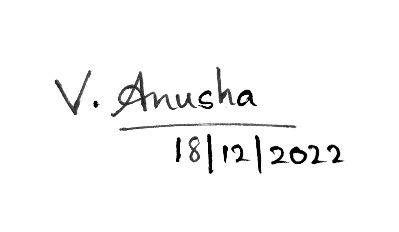 V. Anusha
18/12/2022